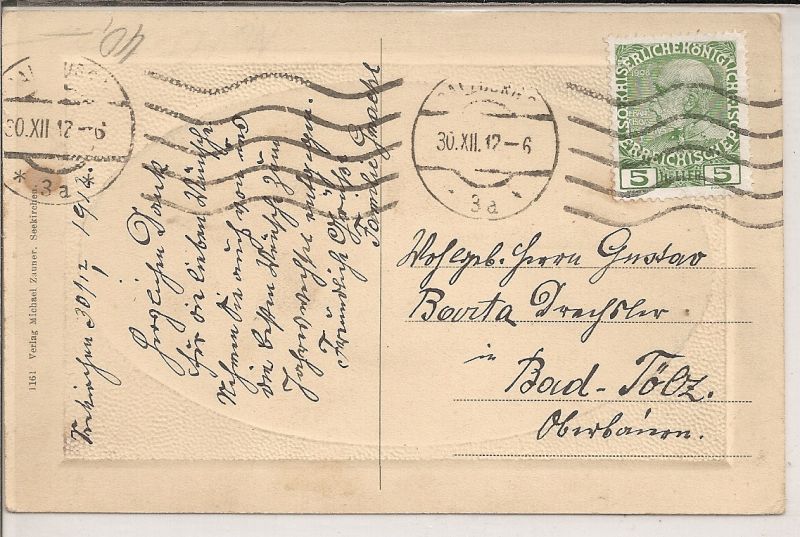 40,-
SALZBURG 2
30.XII.12-6
* 3a *
SALZBURG 2
30.XII.12-6
* 3a *
KAISERLICHE KÖNIGLICHE
ÖSTERREICHISCHE POST
1908
5 HELLER 5
Seekirchen 30/12 1912.
Herzlichen Dank
für die lieben Wünsche
Nehmen Sie auch von uns
die besten Wünsche zum
Jahreswechsel entgegen.
Freundliche Grüße
Familie
Wohlgeb. Herrn Gustav
Barta Drechsler
in
Bad-Tölz.
Oberbaiern.
1161 Verlag Michael Zauner, Seekirchen.